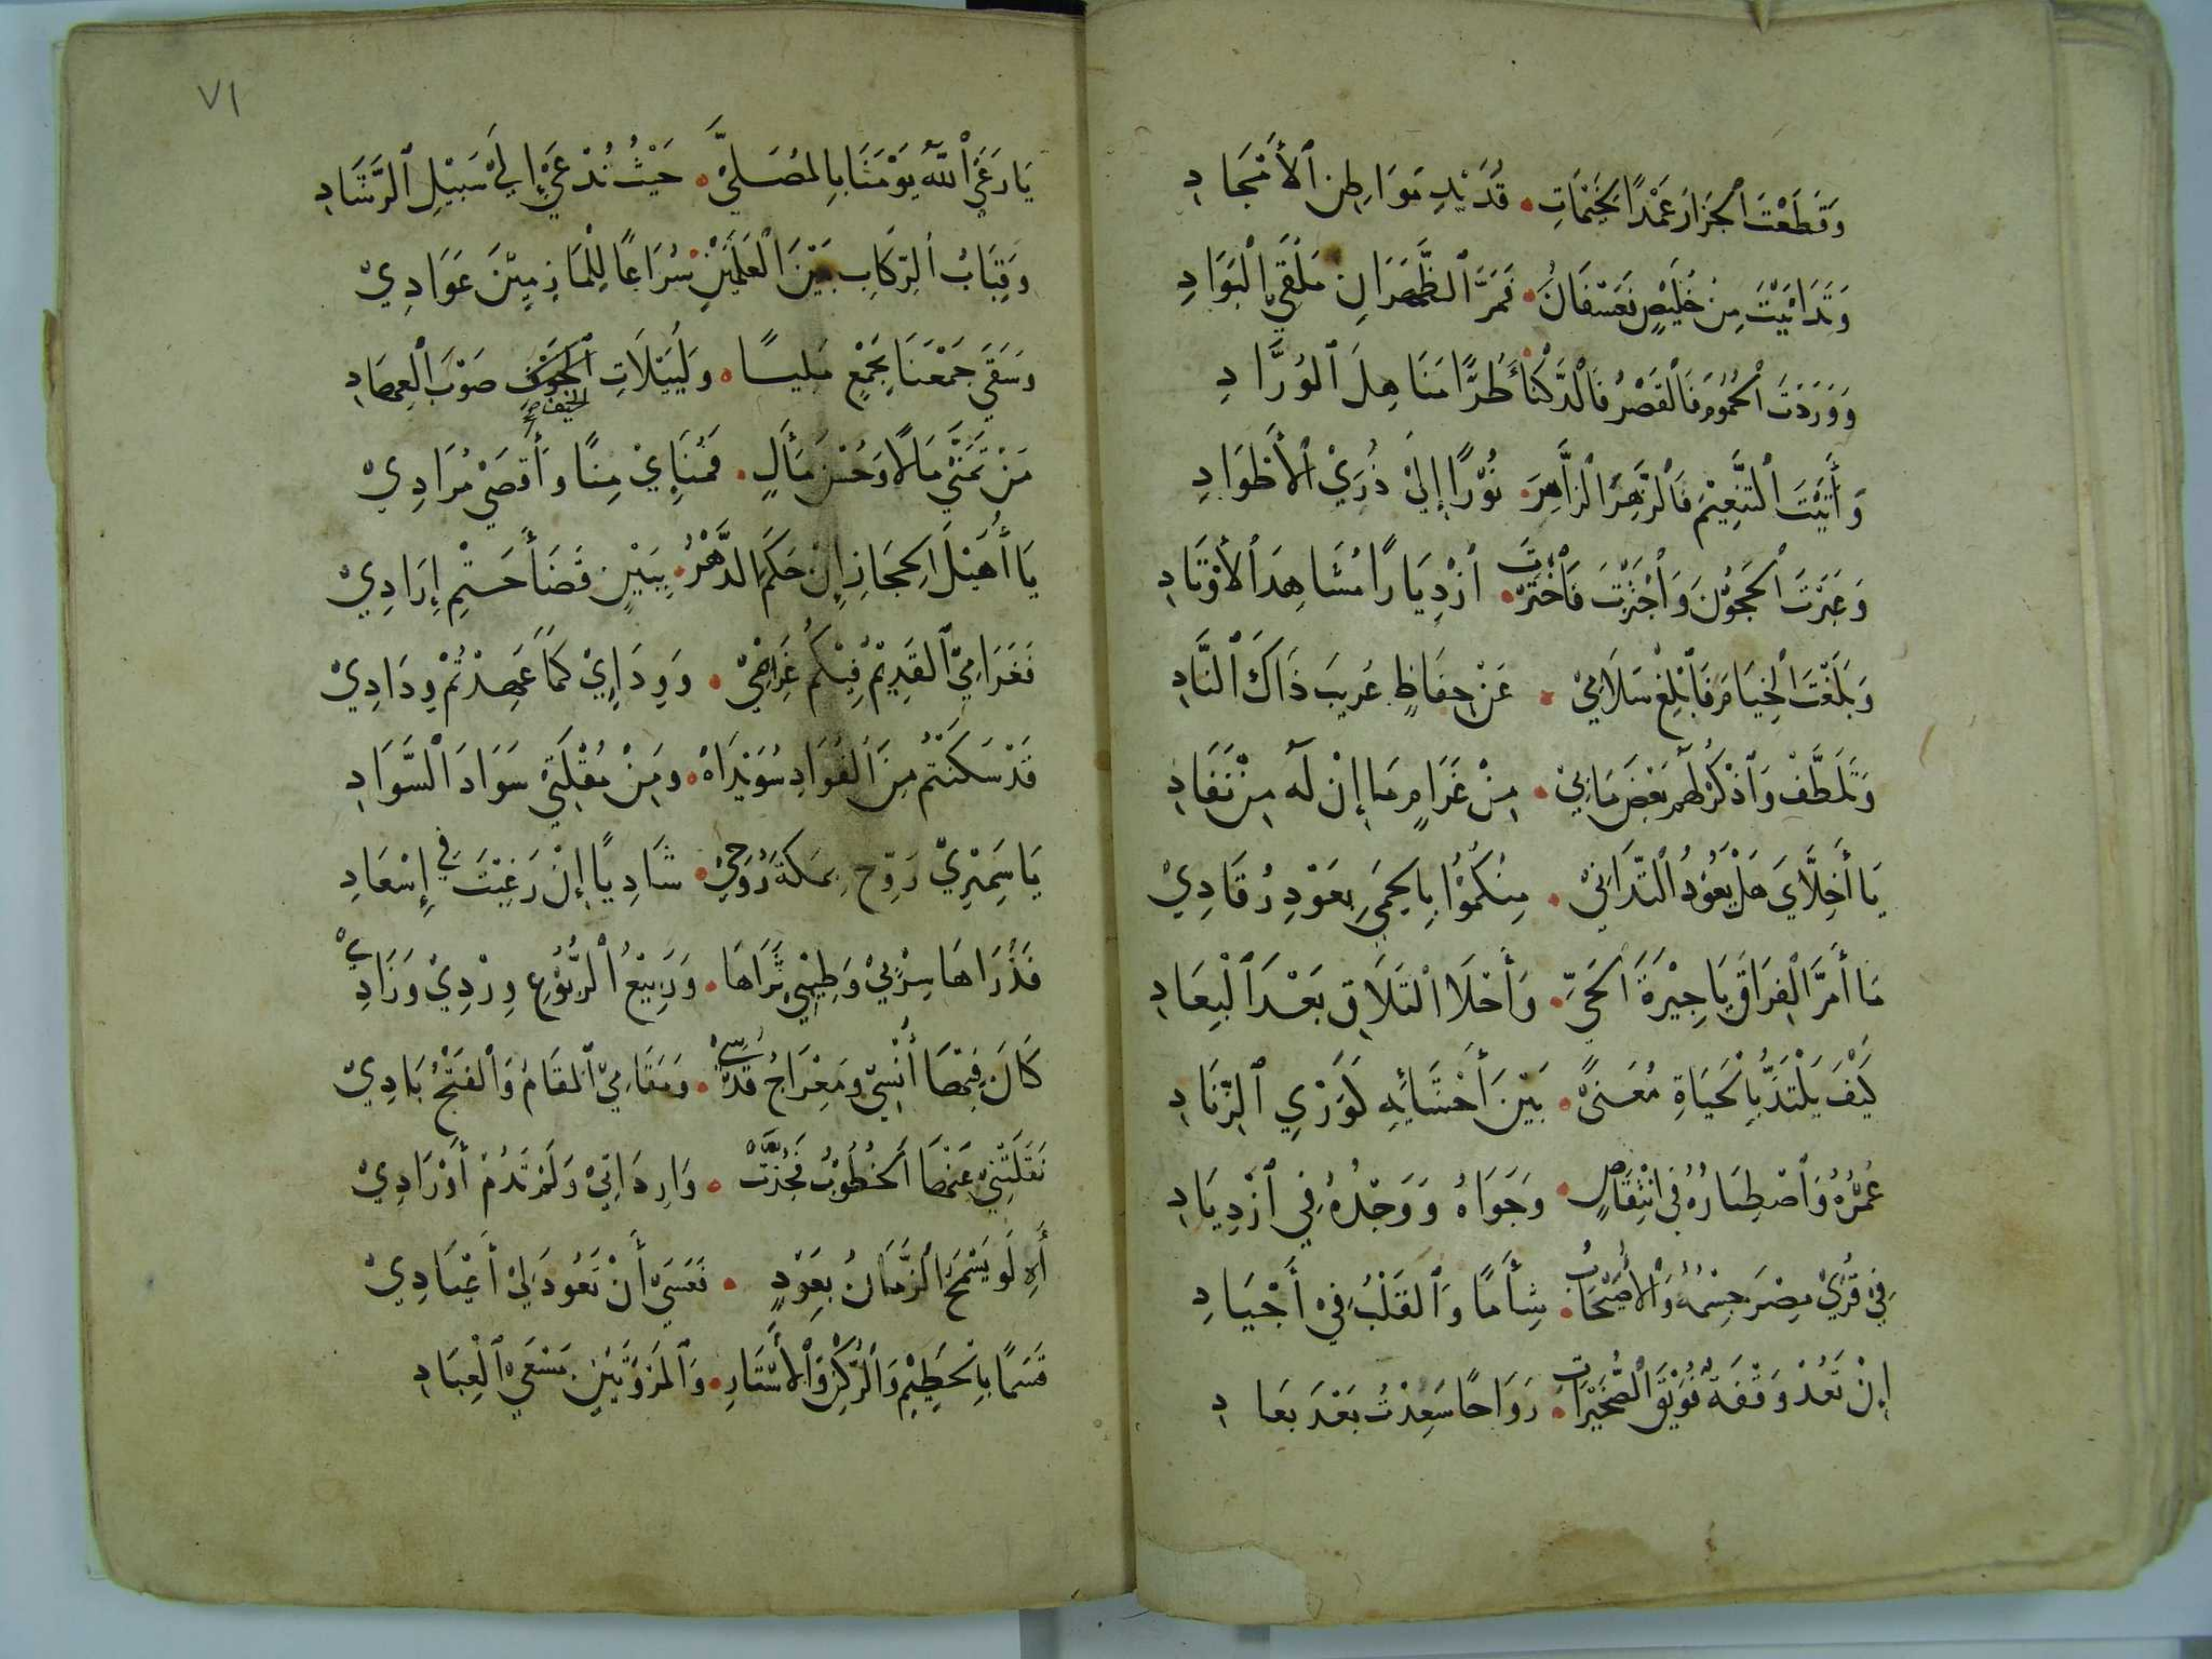 وَقَطَعْتَ ٱلْحِرَارَ عَمْدًا لِخَيْمَاتِ • قُدَيْدٍ مَوَاطِنِ ٱلْأَمْجَادِ
وَتَدَانَيْتَ مِنْ خُلَيْصٍ فَعُسْفَانَ • فَمَرَّ ٱلظَّهْرَانِ مَلْقَي ٱلْبَوَادِ
وَوَرَدْتَ ٱلْجُمُومَ فَالْقَصْرَ فَالدَّكْنَأَ • طُرًّا مَنَاهِلَ ٱلْوُرَّادِ
وَأَتَيْتَ ٱلتَّنْعِيْمَ فَالزَّهِرَ ٱلزَّاهِرَ • نُوْرًا إِلَيْ ذُرَيْ ٱلْأَطْوَادِ
وَعَبَرْتَ ٱلْحَجُوْنَ وَٱجْتَزْتَ فَٱخْتَرْتَ • ٱزْدِيَارًا مُشَاهِدَ ٱلْأَوْتَادِ
وَبَلَغْتَ ٱلْخِيَامَ فَأَبْلِغْ سَلَامِيْ • عَنْ حِفَاظٍ عُرَيبَ ذَاكَ ٱلنَّادِ
وَتَلَطَّفْ وَٱذْكُرْ لَهُمْ بَعْضَ مَابِيْ • مِنْ غَرَامٍ مَا إِنْ لَهُ مِنْ نَفَادِ
يَا أَخِلَّايَ هَلْ يَعُوْدُ ٱلتَّدَانِيْ • مِنْكُمُوْا بِالْحِمَي بِعَوْدِ رُقَادِيْ
مَا أَمَرَّ ٱلْفِرَاقَ يَا جِيْرَةَ ٱلْحَيِّ • وَأَحْلَا ٱلتَّلَاقِ بَعْدَ ٱلْبِعَادِ
كَيْفَ يَلْتَذُّ بِالْحَيَاةِ مُعَنًّى • بَيْنَ أَحْشَائِهِ كَوَرْيِ ٱلزِّنَادِ
عُمْرُهُ وَٱصْطِبَارُهُ فِي انْتِقَاصٍ • وَجَوَاهُ وَوَجْدُهُ فِي ٱزْدِيَادِ
فِيْ قُرَيْ مِصْرَ جِسْمُهُ وَٱلْأُصَيْحَابُ • شِأَمًا وَٱلْقَلْبُ فِيْ أَجْيَادِ
إِنْ تَعُدْ وَقْفَةٌ فُوَيْقَ ٱلصُّخَيْرَاتِ • رَوَاحًا سَعِدْتُ بَعْدَ بَعَادِ
٧١
يَا رَعَيْ ٱللّٰهُ يَوْمَنَا بِالْمُصَلَّيْ • حَيْثُ نُدْعَيْ إِلَيْ سَبِيْلِ ٱلرَّشَادِ
وَقِبَابُ ٱلرِّكَابِ بَيْنَ ٱلْعَلَمَيْنِ • سُرَاعًا لِلْمَازِمَيْنِ غَوَادِيْ
وَسَقَيَ جَمْعَنَا بِجَمْعٍ مُلِيًّا • وَلُيَيْلَاتِ ٱلْخَيْفِ صَوْبَ ٱلْعِهَادِ
الخيف صح
مَنْ تَمَنَّيْ مَالًا وَحُسْنَ مَأَلٍ • فَمُنَايْ مِنًا وَأَقْصَيْ مُرَادِيْ
يَا أُهَيْلَ ٱلْحِجَازِ إِنْ حَكَمَ ٱلدَّهْرُ • بِبَيْنٍ قَضَأَ حَتْمِ إِرَادِيْ
فَغَرَامِيْ ٱلْقَدِيْمُ فِيْكُمْ غَرَامِيْ • وَوِدَادِيْ كَمَا عَهِدْتُمْ وِدَادِيْ
قَدْ سَكَنْتُمْ مِنَ ٱلْفُوَادِ سُوَيْدَاهُ • وَمِنْ مُقْلَتِيْ سَوَادَ ٱلسَّوَادِ
يَا سَمِيْرِيْ رَوِّحْ بِمَكَّةَ رُوْحِيْ • شَادِيًا إِنْ رَغِبْتَ فِي إِسْعَادِ
فَذُرَاهَا سِرْبِيْ وَطِيْبِيْ ثَرَاهَا • وَرَبِيْعُ ٱلرُّبُوْعِ وِرْدِيْ وَزَادِيْ
كَانَ فِيْهَا أُنْسِيْ وَمِعْرَاجُ قُدْسِيْ • وَمَقَامِيْ ٱلْمَقَامُ وَٱلْفَتْحُ بَادِيْ
نَقَلَتْنِيْ عَنْهَا ٱلْخُطُوْبُ فَجُذَّتْ • وَارِدَاتِيْ وَلَمْ تَدُمْ أَوْرَادِيْ
أَهِ لَوْ يَسْمَحُ ٱلزَّمَانُ بِعَوْدٍ • فَعَسَيْ أَنْ تَعُوْدَ لِيْ أَعْيَادِيْ
قَسَمًا بِالْحَطِيْمِ وَٱلرُّكْنِ وَٱلْأَسْتَارِ • وَٱلْمَرْوَتَيْنِ مَسْعَيْ ٱلْعِبَادِ